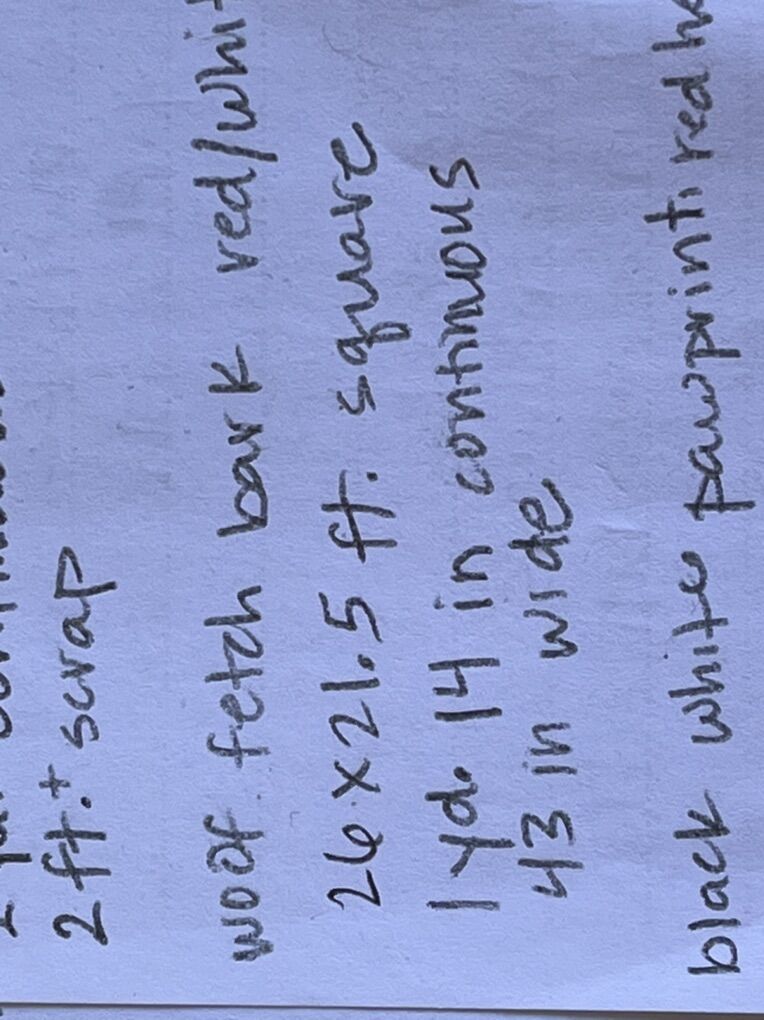 2 ft.+ scrap
woof fetch bark red/whi
26 x 21.5 ft. square
1 yd. 14 in continuous
43 in wide
black white pawprint red